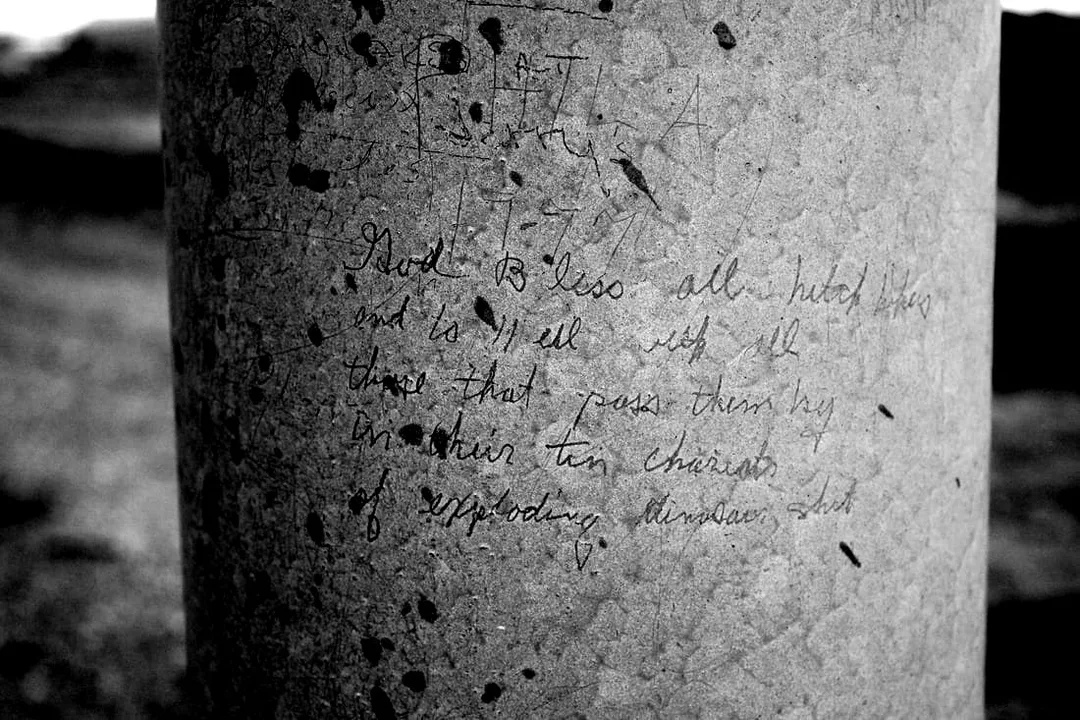 A-T
A
7-7-7
God Bless all hitch hikers
and to Hell with all
those that pass them by
in their tin chariots
of exploding dinosaur shit